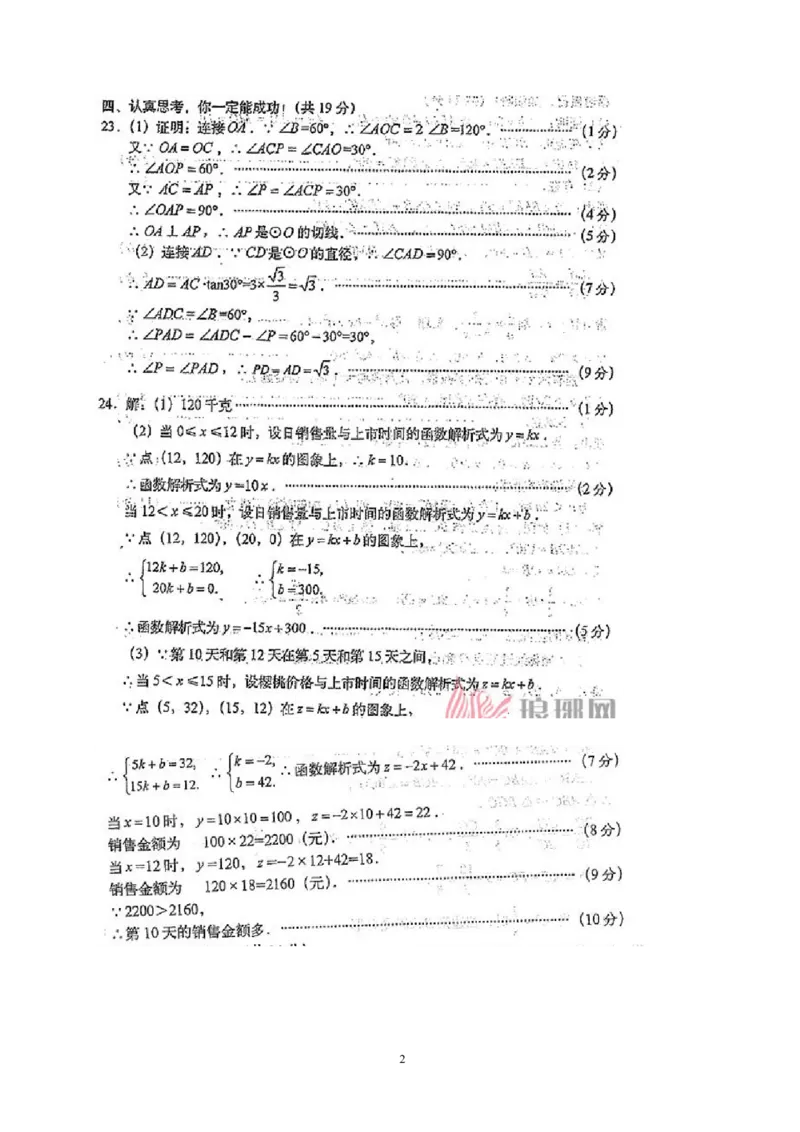 四、认真思考，你一定能成功！(共 19 分)
23．(1) 证明：连接OA．∵ ∠B=60°，∴ ∠AOC = 2 ∠B=120°．………………(1 分)
又∵ OA = OC ，∴ ∠ACP = ∠CAO=30°．
∴ ∠AOP = 60°．………………(2 分)
又∵ AC = AP ，∴ ∠P = ∠ACP = 30°．
∴ ∠OAP = 90°．………………(4 分)
∴ OA ⊥ AP，∴ AP 是⊙O 的切线．………………(5 分)
(2) 连接 AD ．∵ CD 是⊙O 的直径，∴ ∠CAD = 90°．
∴ AD = AC ·tan30°=3×√3/3=√3．………………(7 分)
∵ ∠ADC = ∠B=60°，
∴ ∠PAD = ∠ADC − ∠P = 60° − 30°=30°，
∴ ∠P = ∠PAD，∴ PD = AD = √3．………………(9 分)
24．解：(1) 120 千克………………(1 分)
(2) 当 0≤ x ≤12 时，设日销售量与上市时间的函数解析式为 y = kx ．
∵点 (12，120) 在 y = kx 的图象上，∴ k = 10．
∴函数解析式为 y=10x．………………(2 分)
当 12< x ≤20 时，设日销售量与上市时间的函数解析式为 y = kx + b ．
∵点 (12，120)，(20，0) 在 y = kx + b 的图象上，
∴ {12k + b = 120, 20k + b = 0. ∴ {k = −15, b = 300.
∴函数解析式为 y = −15x + 300 ．………………(5 分)
(3) ∵第 10 天和第 12 天在第 5 天和第 15 天之间，
∴当 5< x ≤15 时，设樱桃价格与上市时间的函数解析式为 z = kx + b．
∵点 (5，32)，(15，12) 在 z = kx + b 的图象上，
琅琊网
∴ {5k + b = 32, 15k + b = 12. ∴ {k = −2, b = 42. ∴函数解析式为 z = −2x + 42 ．………………(7 分)
当 x = 10 时，y = 10×10 = 100，z = −2×10 + 42 = 22．
销售金额为 100×22=2200 (元)．………………(8 分)
当 x =12 时，y =120，z = −2×12+42=18．
销售金额为 120×18=2160 (元)．………………(9 分)
∵ 2200＞2160，
∴第 10 天的销售金额多．………………(10 分)
2